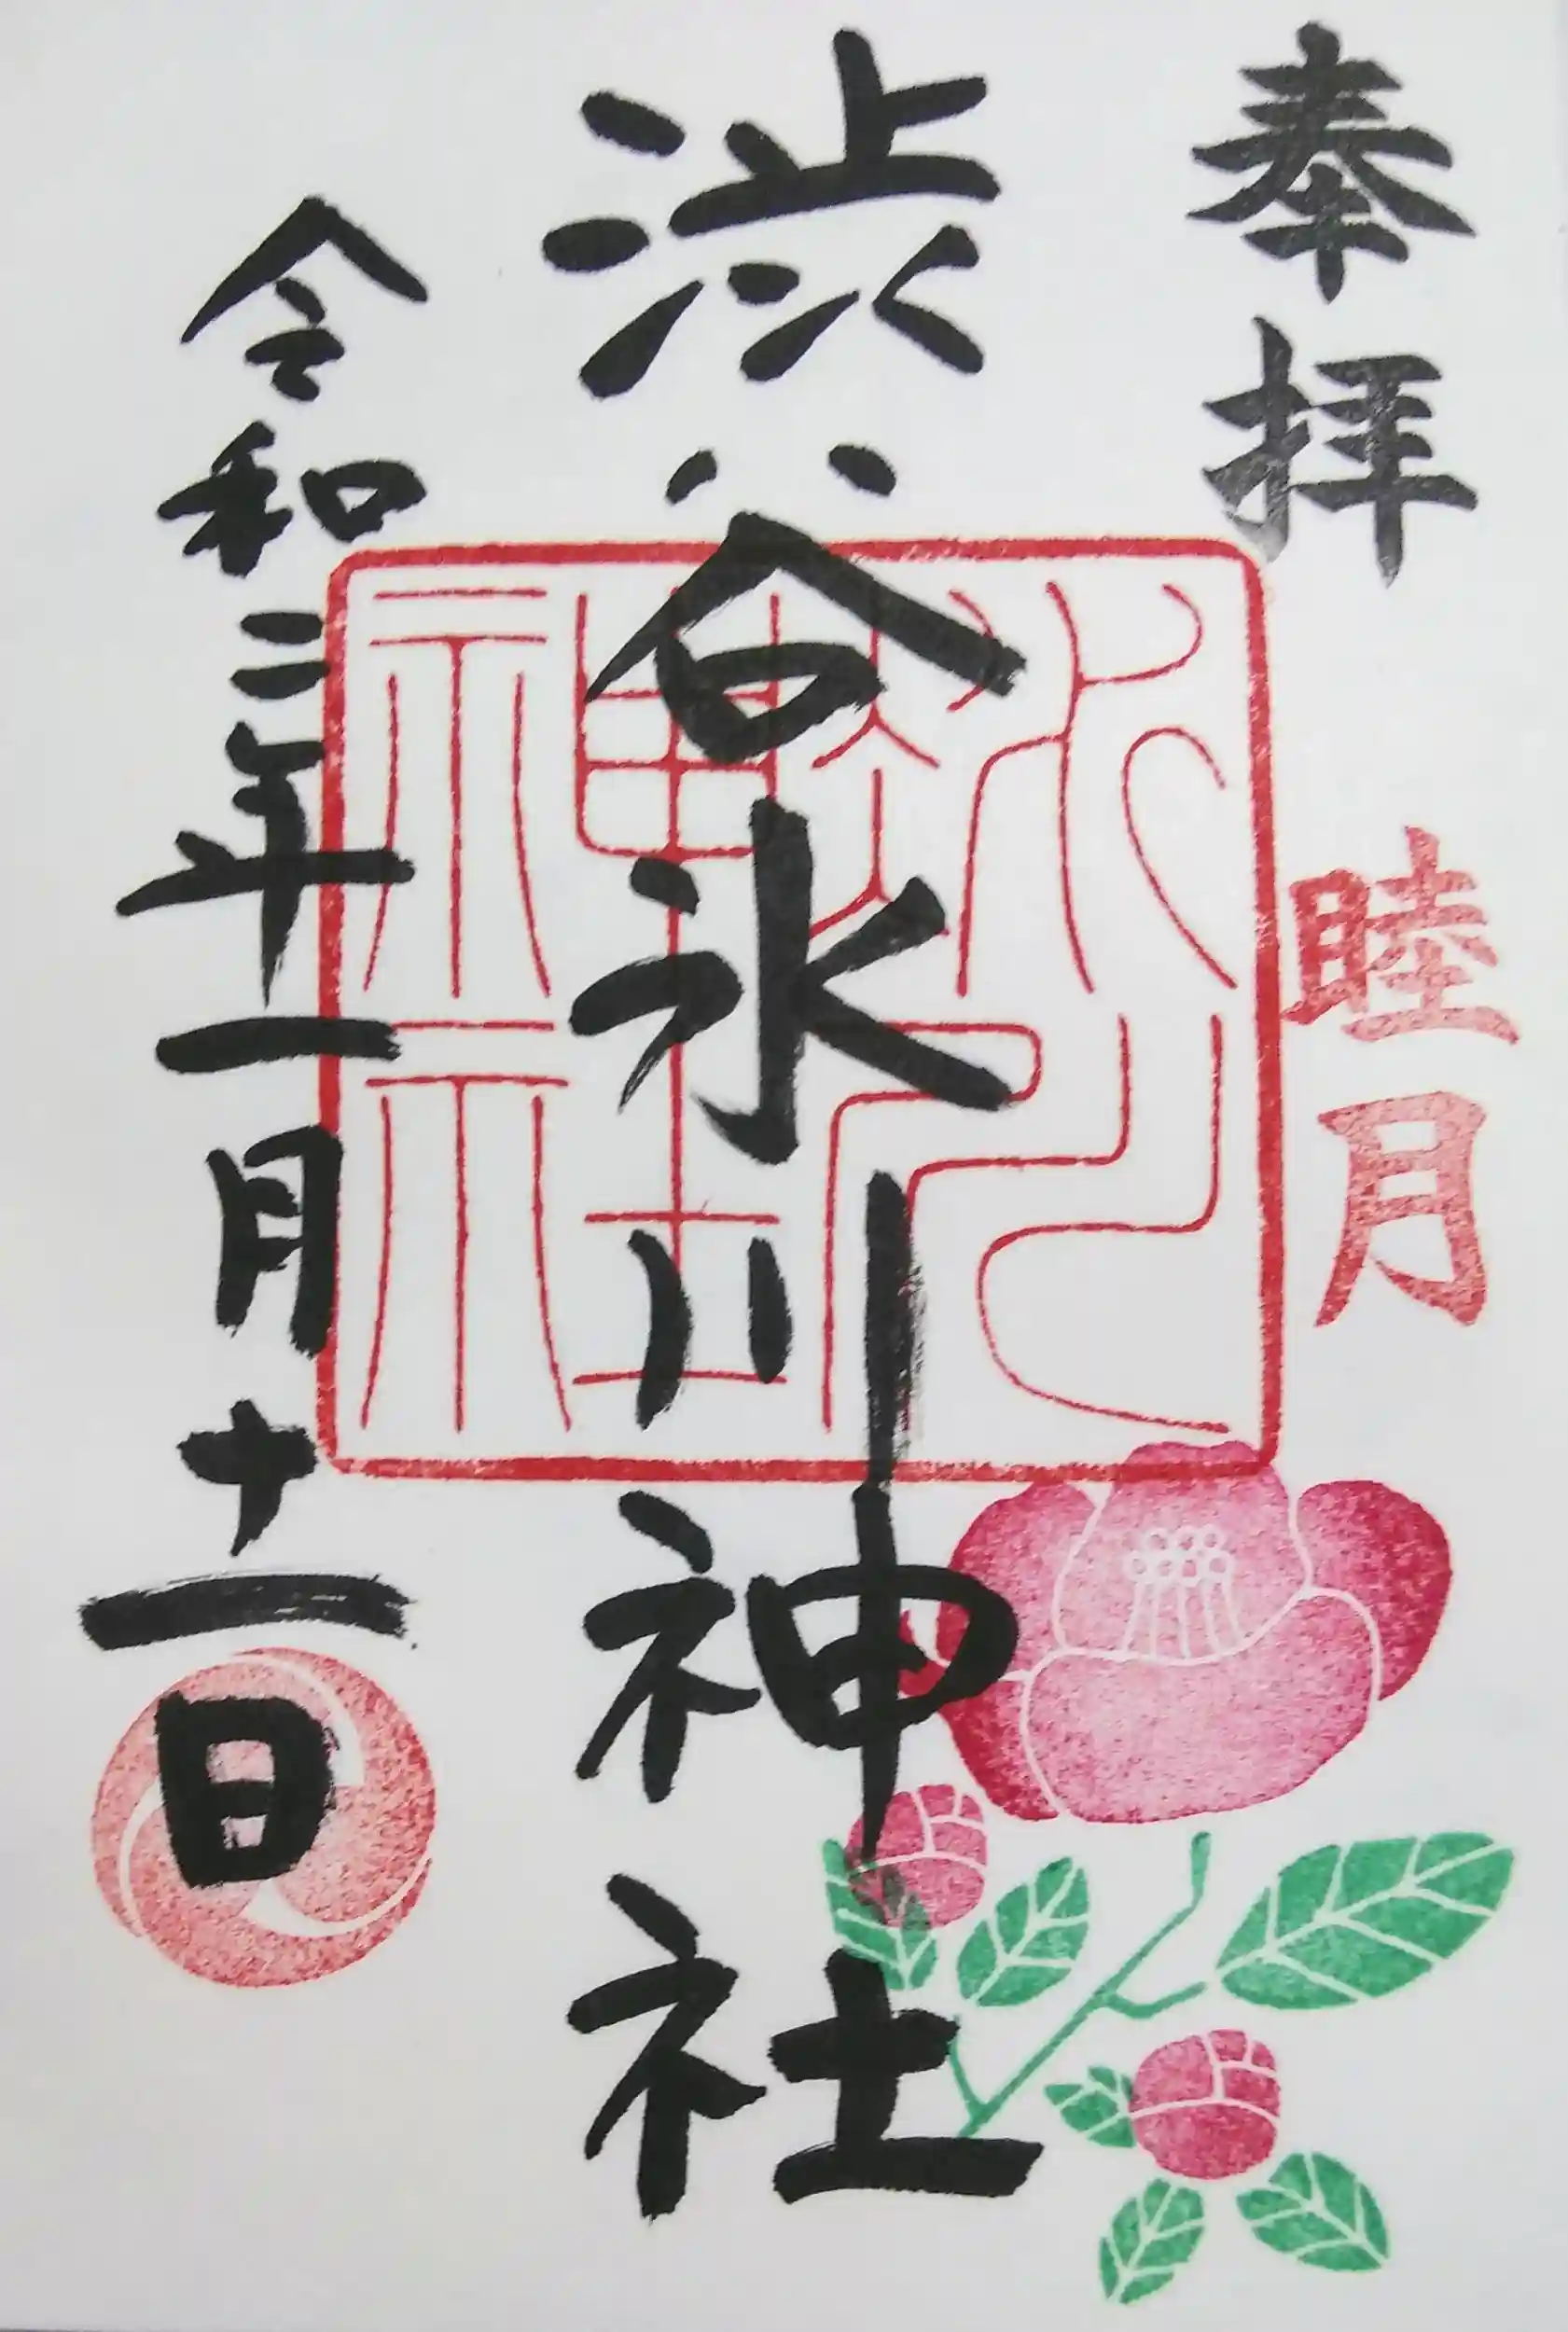 奉拝
睦月
渋谷氷川神社
氷川
神社
令和二年一月十一日